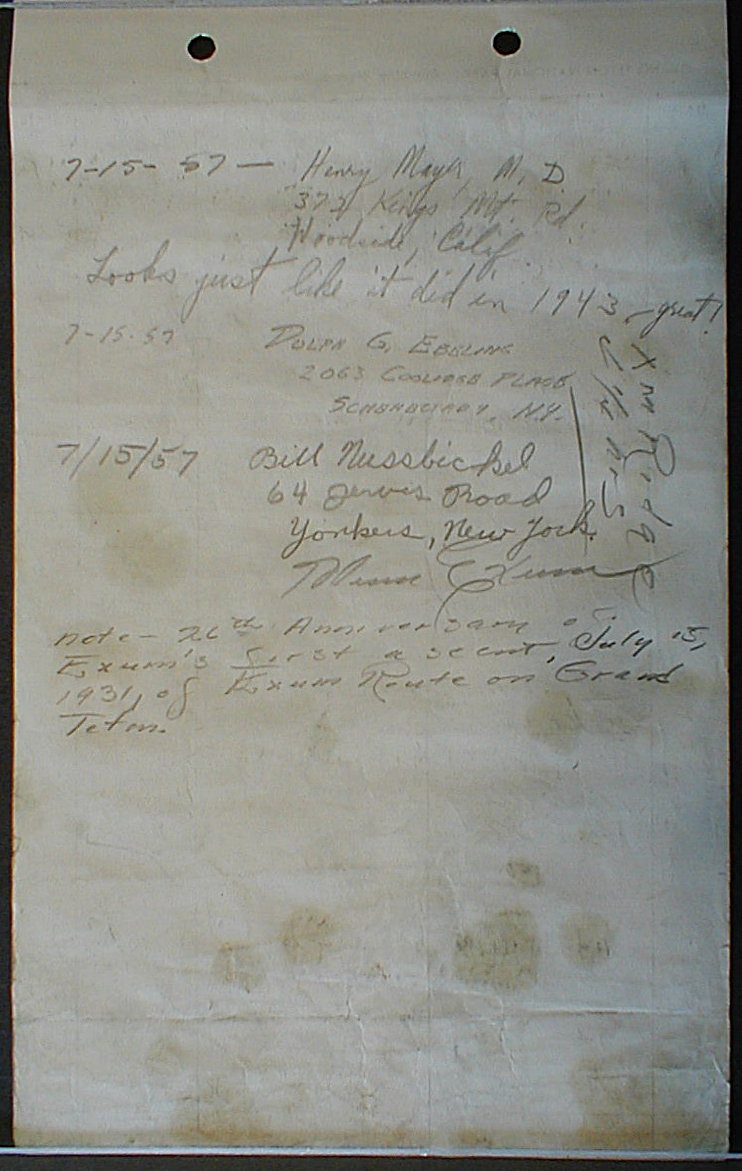 7-15-57 — Henry Mayer, M.D
372 Kings Mt. Rd.
Woodside, Calif.
Looks just like it did in 1943 - great!
7-15-57 DOLPH G. EBELING
2063 COOLIDGE PLACE
SCHENECTADY, N.Y.
7/15/57 Bill Nussbickel
64 Jervis Road
Yonkers, New York.
Glenn Exum
Exum Ridge
note - 26th Anniversary of
Exum's first ascent, July 15,
1931, of Exum Route on Grand
Teton.